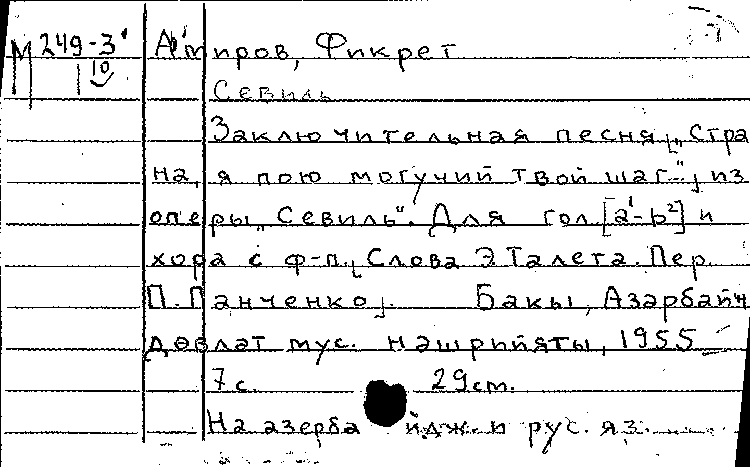 М 249-3 Амиров, Фикрет
10
Севиль
Заключительная песня [„Стра
на, я пою могучий твой шаг..."], из
оперы „Севиль". Для гол. [a¹-b²] и
хора с ф-п. [Слова Э. Талета. Пер.
П. Панченко]. Бакы, Азәрбайҹ.
дөвләт мус. нәшрийяты, 1955
7 с. 29 см.
На азербайдж. и рус. яз.